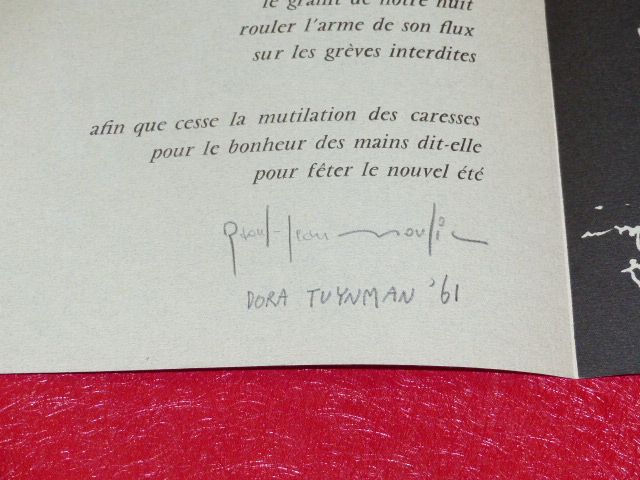 le granit de notre nuit
rouler l'arme de son flux
sur les grèves interdites
afin que cesse la mutilation des caresses
pour le bonheur des mains dit-elle
pour fêter le nouvel été
Jean moulin
DORA TUYNMAN '61